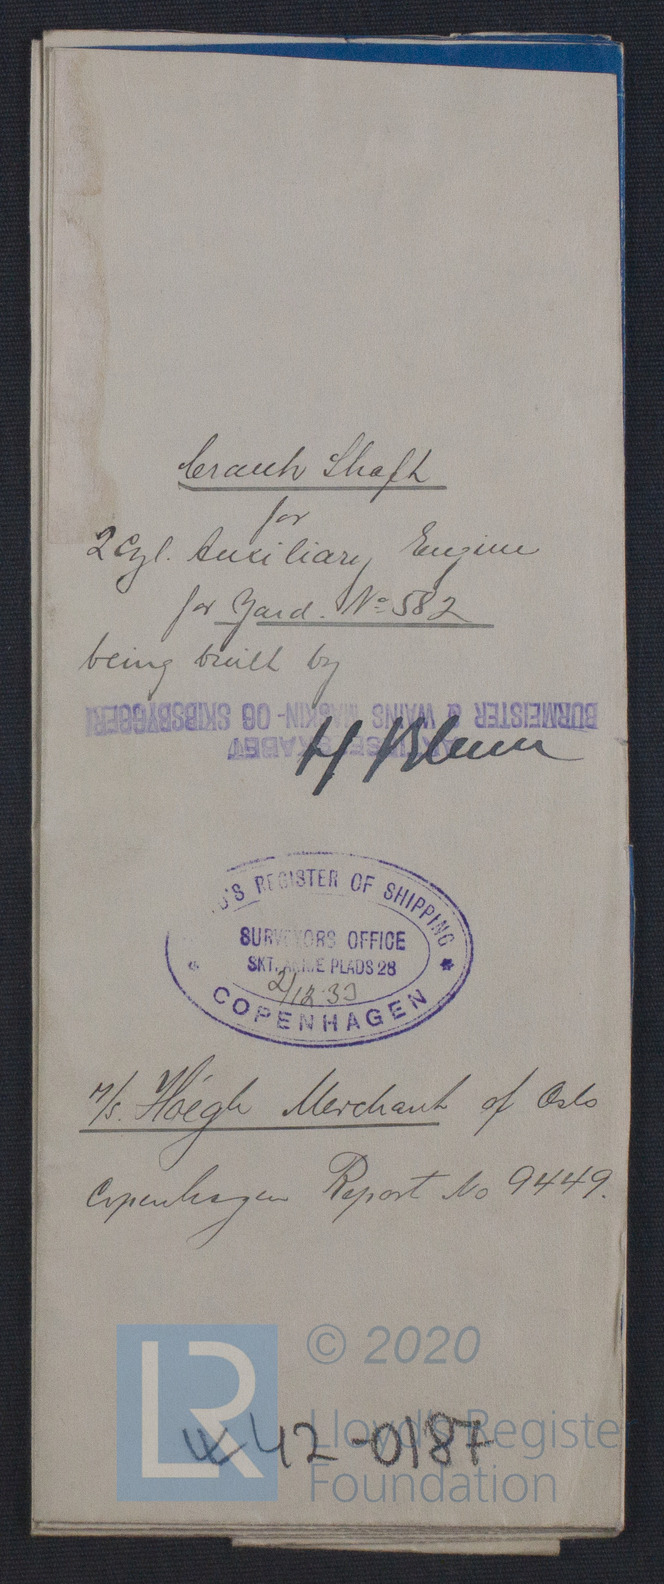 Crank Shaft
for
2 Cyl. Auxiliary Engine
for Yard. No 582
being built by
AKTIESELSKABET
BURMEISTER & WAINS MASKIN- OG SKIBSBYGGERI
H Blum
LLOYD'S REGISTER OF SHIPPING
SURVEYORS OFFICE
SKT. ANNE PLADS 28
2/12 33
COPENHAGEN
M/S. Höegh Merchant of Oslo
Copenhagen Report No 9449.
LR
© 2020
Lloyd's Register
Foundation
W42-0187